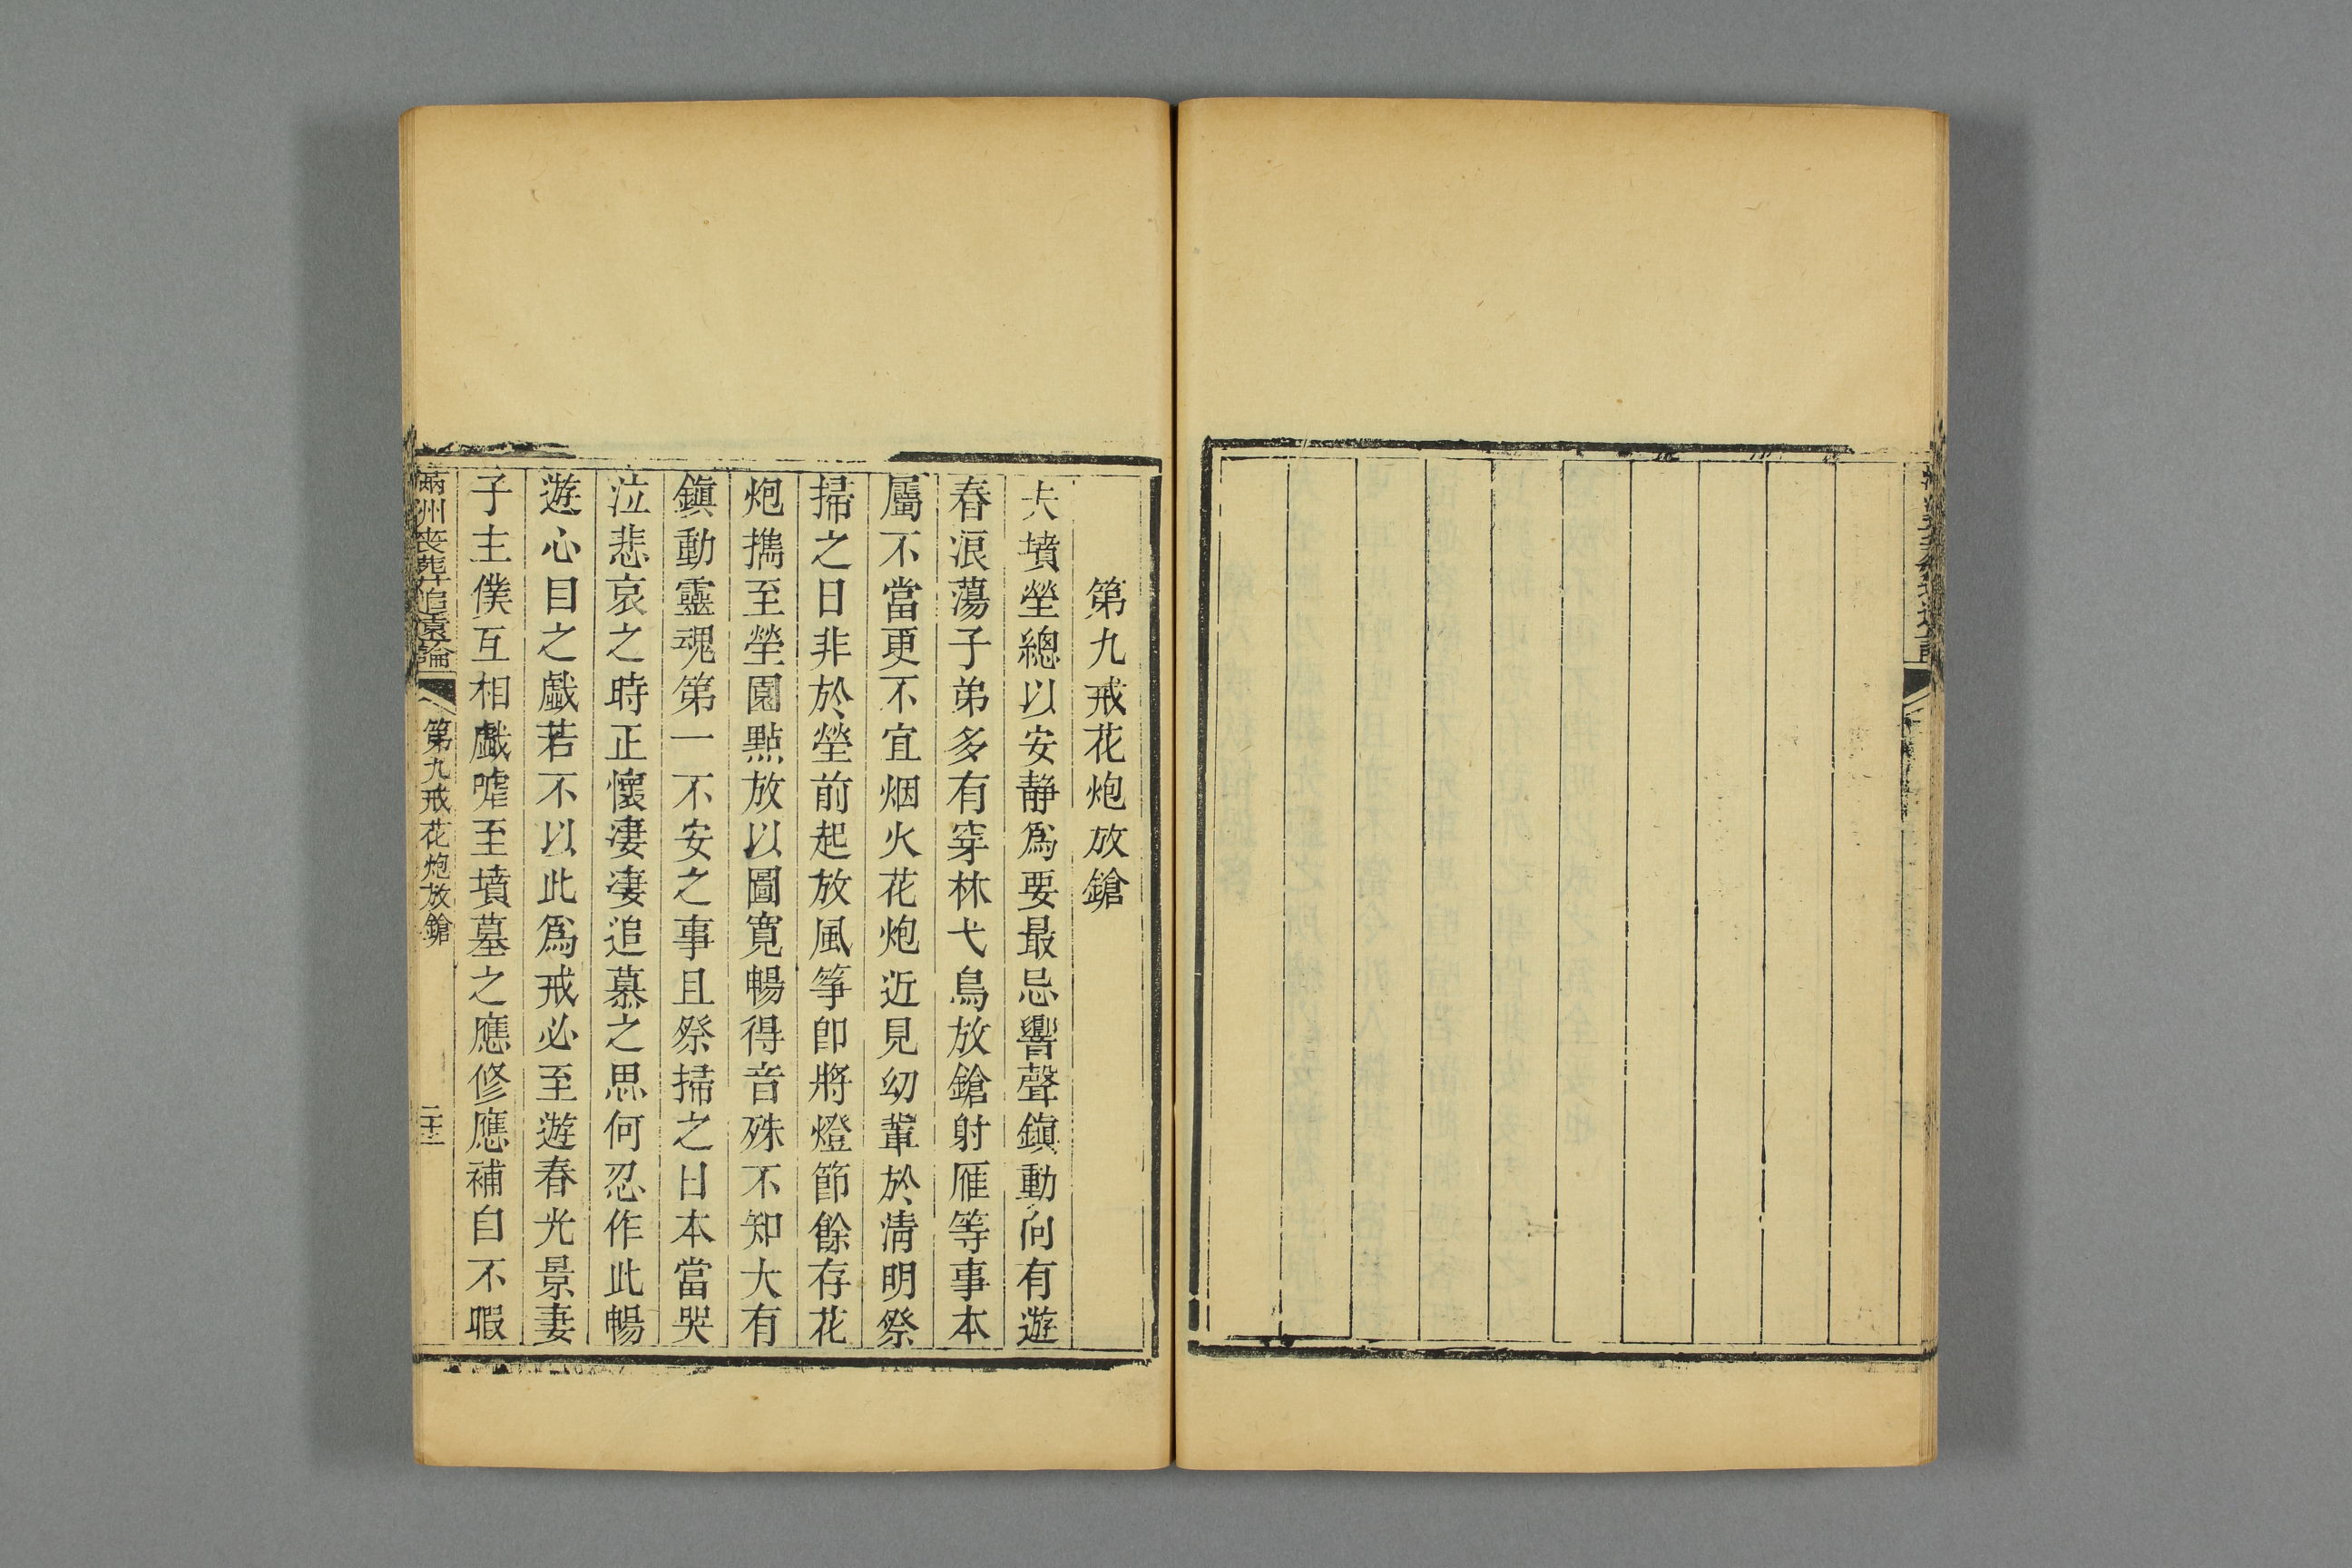 第九戒花炮放鎗
夫墳塋總以安静爲要最忌響聲鎭動向有遊
春浪蕩子弟多有穿林弋鳥放鎗射雁等事本
屬不當更不宜烟火花炮近見幼輩於清明祭
掃之日非於塋前起放風筝卽將燈節餘存花
炮擕至塋園點放以圖寬暢得音殊不知大有
鎭動靈魂第一不安之事且祭掃之日本當哭
泣悲哀之時正懷淒淒追慕之思何忍作此暢
遊心目之戲若不以此爲戒必至遊春光景妻
子主僕互相戲嘘至墳墓之應修應補自不暇
滿州丧葬追遠論
第九戒花炮放鎗